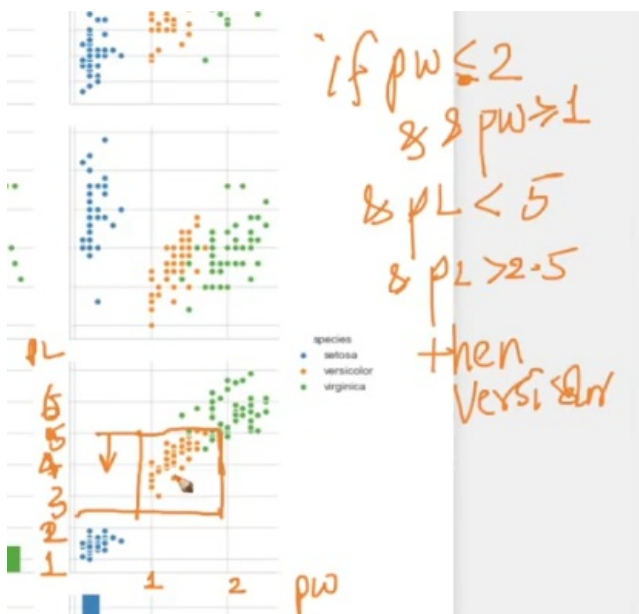 if pw ≤ 2
& & pw ≥ 1
& pL < 5
& pL > 2.5
then
species
setosa
versicolor
virginica
PL
6
5
4
3
2
1
1 2 pw